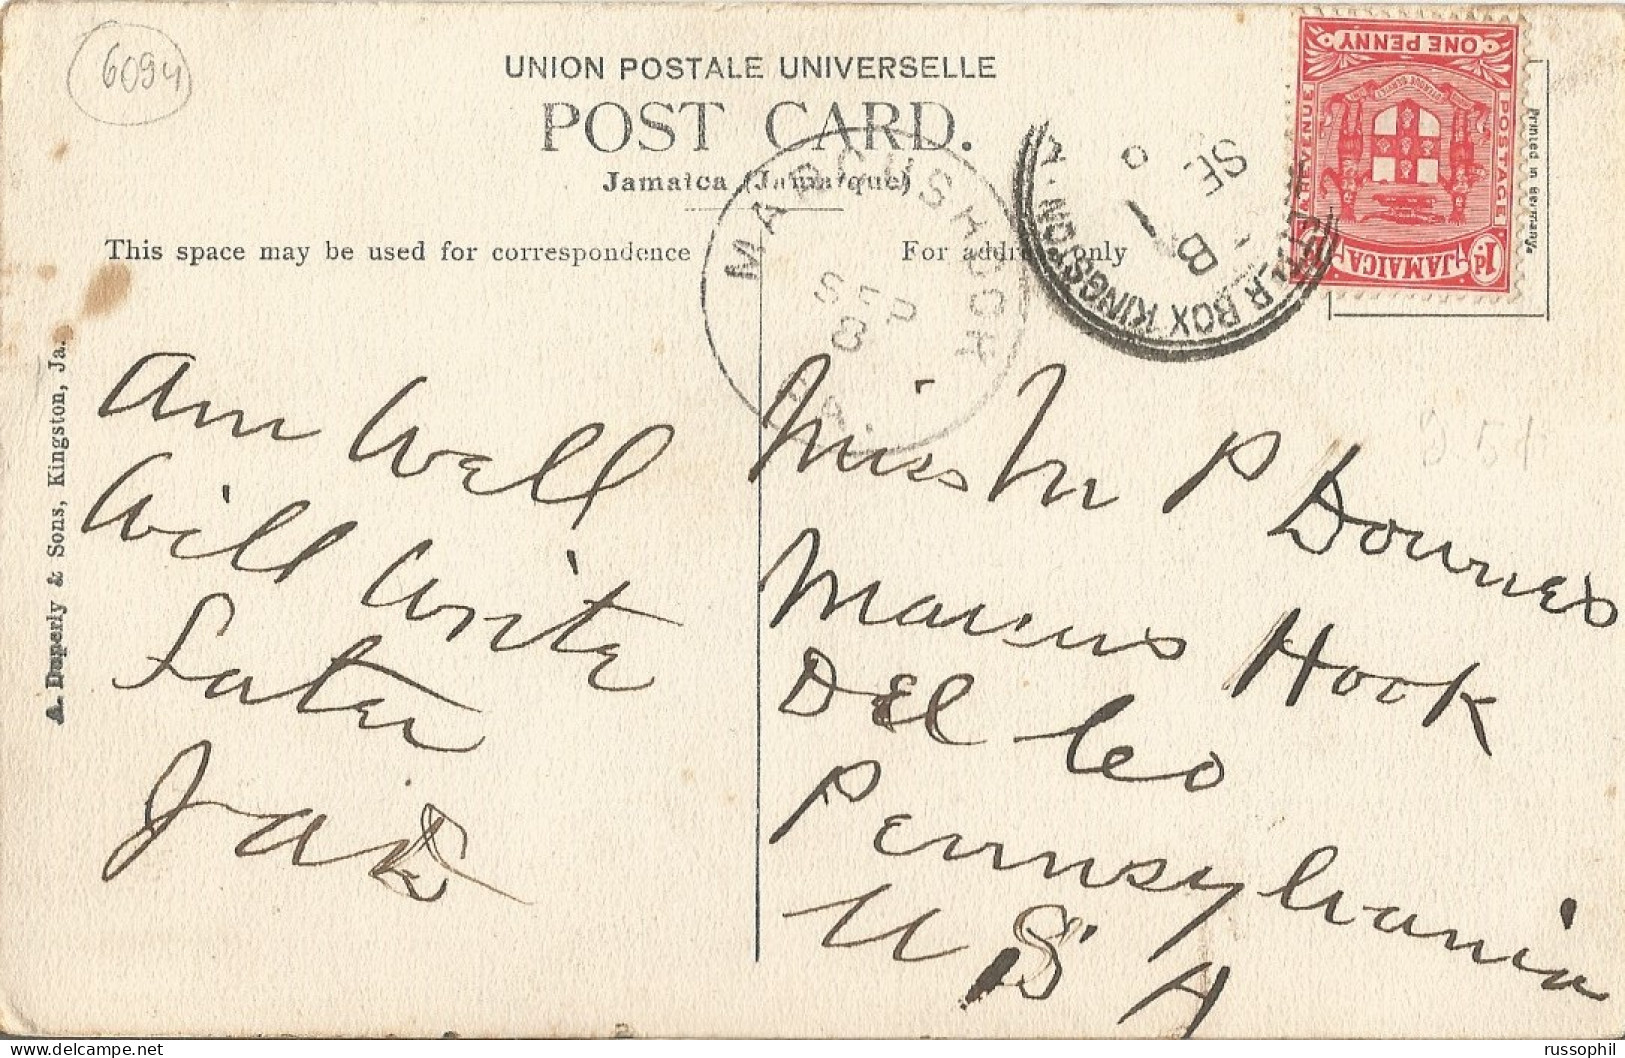 6094
UNION POSTALE UNIVERSELLE
POST CARD.
Jamaica (Jamaique)
This space may be used for correspondence
For address only
MARCUS HOOK
SEP
8
PA.
LETTER BOX KINGSTON. JA
B
SE
ONE PENNY
REVENUE
POSTAGE
JAMAICA
1d
Printed in Germany.
A. Duperly & Sons, Kingston, Ja.
Am Well
Will Write
Later
Jack
Miss M P Downes
Marcus Hook
Del Co
Pennsylvania
U S A
russophil